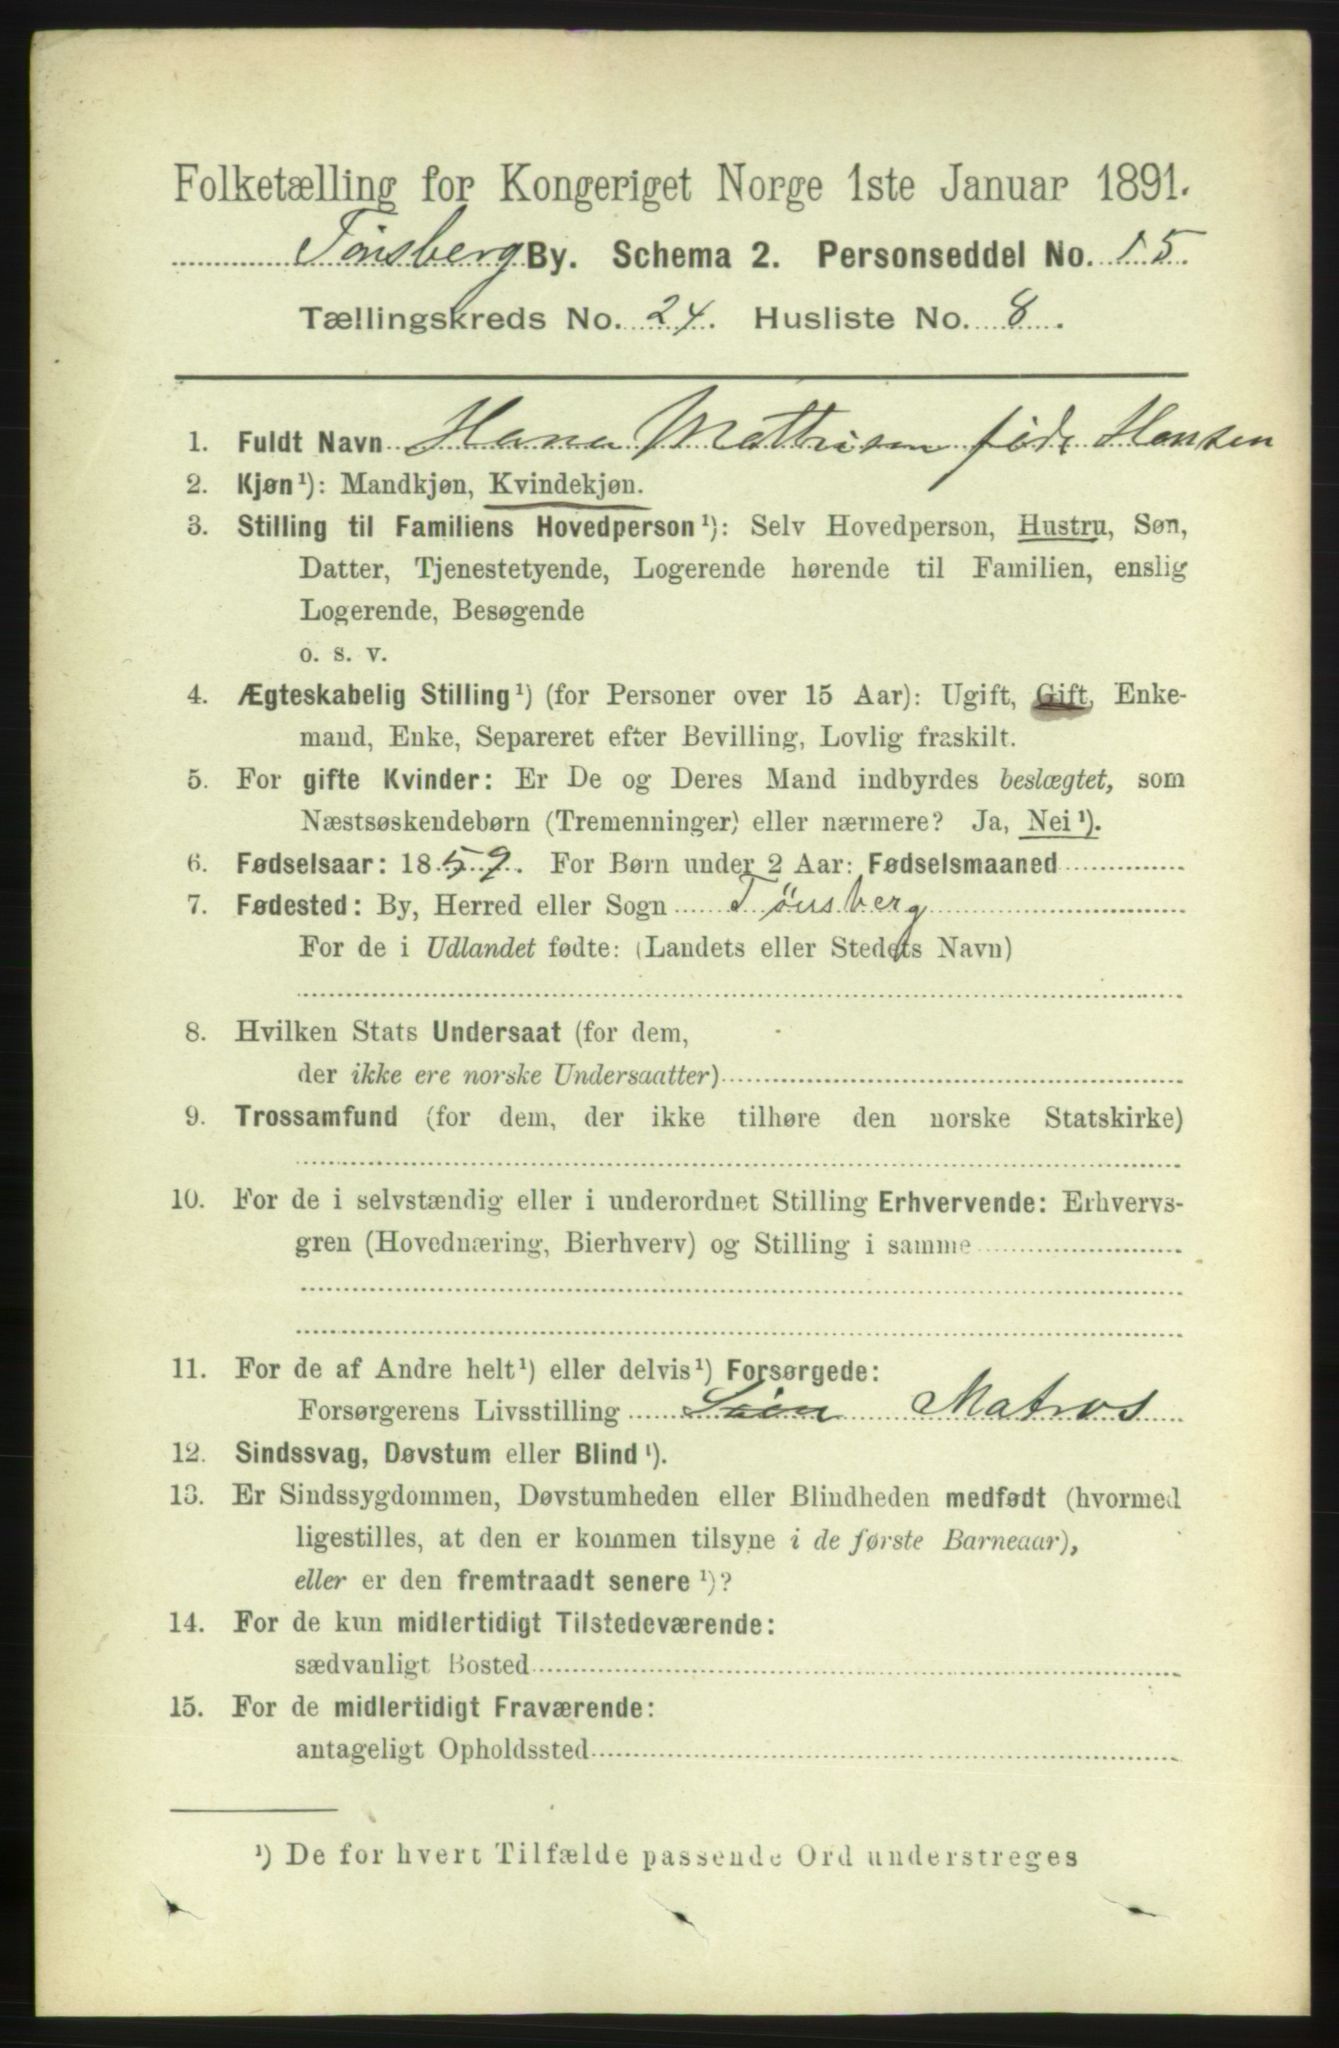 Folketælling for Kongeriget Norge 1ste Januar 1891.
Tønsberg By. Schema 2. Personseddel No. 15
Tællingskreds No. 24. Husliste No. 8.
1. Fuldt Navn Hana Mathisen føde Hansen
2. Kjøn¹): Mandkjøn, Kvindekjøn.
3. Stilling til Familiens Hovedperson¹): Selv Hovedperson, Hustru, Søn,
Datter, Tjenestetyende, Logerende hørende til Familien, enslig
Logerende, Besøgende
o. s. v.
4. Ægteskabelig Stilling¹) (for Personer over 15 Aar): Ugift, Gift, Enke-
mand, Enke, Separeret efter Bevilling, Lovlig fraskilt.
5. For gifte Kvinder: Er De og Deres Mand indbyrdes beslægtet, som
Næstsøskendebørn (Tremenninger) eller nærmere? Ja, Nei¹).
6. Fødselsaar: 1859. For Børn under 2 Aar: Fødselsmaaned
7. Fødested: By, Herred eller Sogn Tønsberg
For de i Udlandet fødte: (Landets eller Stedets Navn)
8. Hvilken Stats Undersaat (for dem,
der ikke ere norske Undersaatter)
9. Trossamfund (for dem, der ikke tilhøre den norske Statskirke)
10. For de i selvstændig eller i underordnet Stilling Erhvervende: Erhvervs-
gren (Hovednæring, Bierhverv) og Stilling i samme
11. For de af Andre helt¹) eller delvis¹) Forsørgede:
Forsørgerens Livsstilling Matros
12. Sindssvag, Døvstum eller Blind¹).
13. Er Sindssygdommen, Døvstumheden eller Blindheden medfødt (hvormed
ligestilles, at den er kommen tilsyne i de første Barneaar),
eller er den fremtraadt senere¹)?
14. For de kun midlertidigt Tilstedeværende:
sædvanligt Bosted
15. For de midlertidigt Fraværende:
antageligt Opholdssted
¹) De for hvert Tilfælde passende Ord understreges